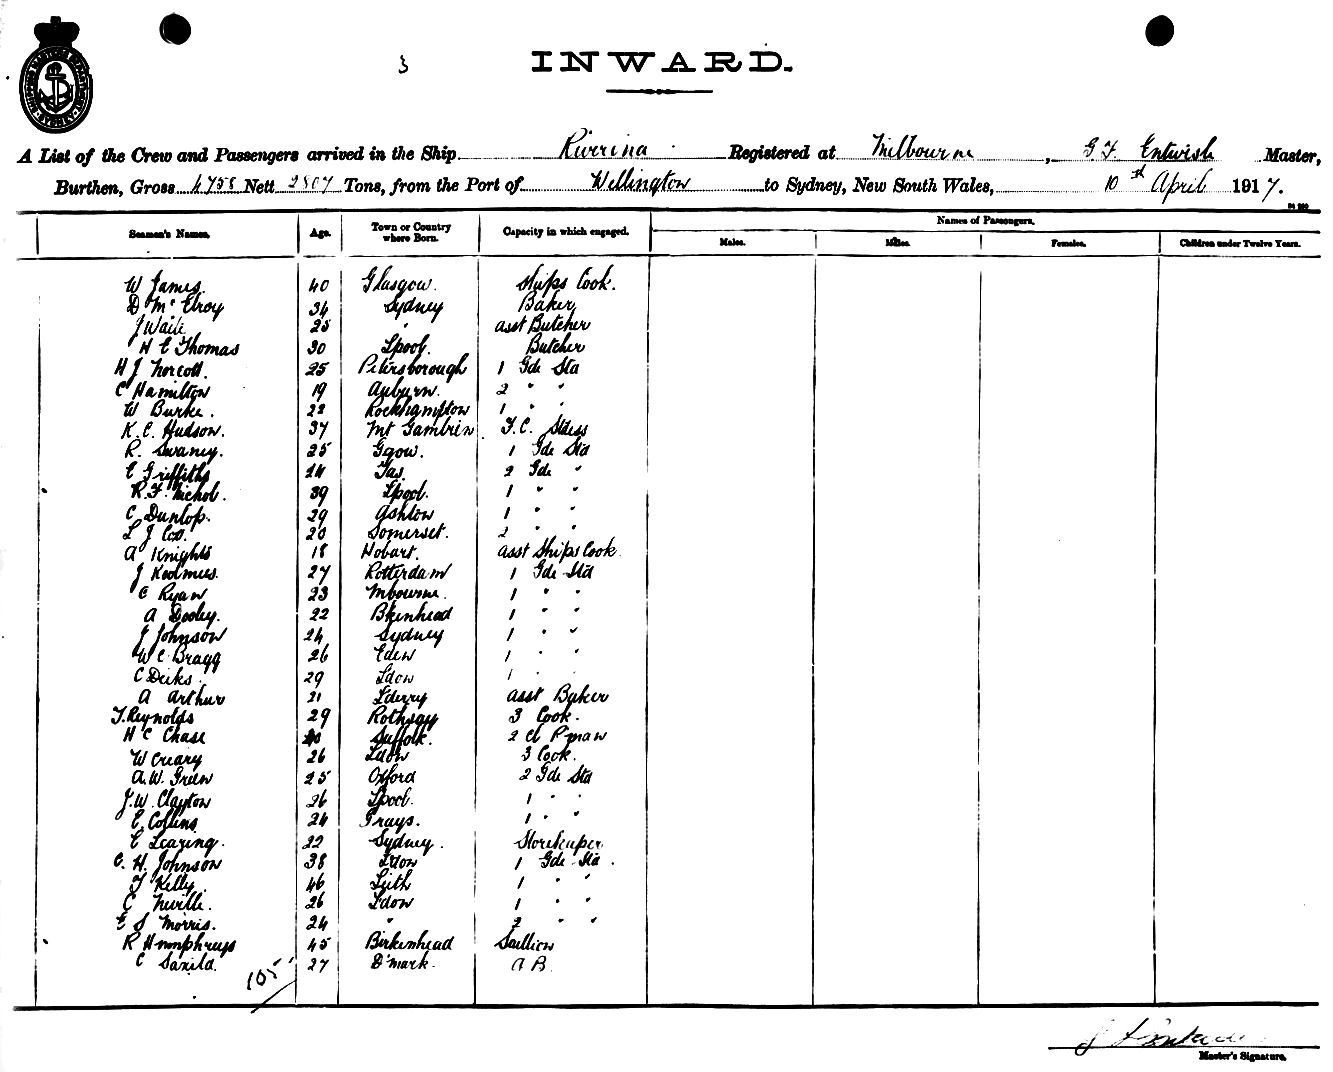 3
INWARD.
SHIPPING MASTERS DEPARTMENT SYDNEY
A List of the Crew and Passengers arrived in the Ship Riverina Registered at Melbourne, G F Entwish Master,
Burthen, Gross 4758 Nett 2807 Tons, from the Port of Wellington to Sydney, New South Wales, 10th April 1917.
Seamen's Names. Age. Town or Country where Born. Capacity in which engaged. Names of Passengers.
Males. Males. Females. Children under Twelve Years.
W James. 40 Glasgow. Ships Cook.
D McElroy 34 Sydney Baker
J Waile 25 " asst Butcher
H E Thomas 30 Lpool. Butcher
H J Norcott. 25 Petersborough 1 Gde Std
C Hamilton 19 Auburn. 2 " "
W Burke. 22 Rockhampton 1 " "
K. C. Hudson. 37 Mt Gambrin F.C. Stdess
R. Swaney. 25 Ggow. 1 Gde Std
E Griffiths 24 Tas. 2 Gde "
R. F. Nichol. 39 Lpool. 1 " "
C Dunlop. 29 Ashton 1 " "
L J Cox. 20 Somerset. 2 " "
A Knights 18 Hobart. asst Ships Cook
J Koolmees. 27 Rotterdam 1 Gde Std
C Ryan 23 Mbourne. 1 " "
A Dooley. 22 Bkenhead 1 " "
J Johnson 24 Sydney 1 " "
W C Bragg 26 Eden 1 " "
C Dirks. 29 Ldon 1 " "
A Arthur 21 Lderry asst Baker
T. Reynolds 29 Rothsay 3 Cook.
H C Chase Suffolk. 2 Cl P'man
W Creary 26 Ldon 3 Cook.
A. W. Green 25 Oxford 2 Gde Std
J. W. Clayton 26 Lpool. 1 " "
E. Collins 24 Grays. 1 " "
E Learing. 22 Sydney. Storekeeper
C. H. Johnson 38 Ldon 1 Gde Std.
T Kelly. 46 Leith 1 " "
C Neville. 26 Ldon 1 " "
E S Morris. 24 " 2 " "
R Humphreys 45 Birkenhead Scullion
C Saxild. 27 D'mark. A B
105
Master's Signature.